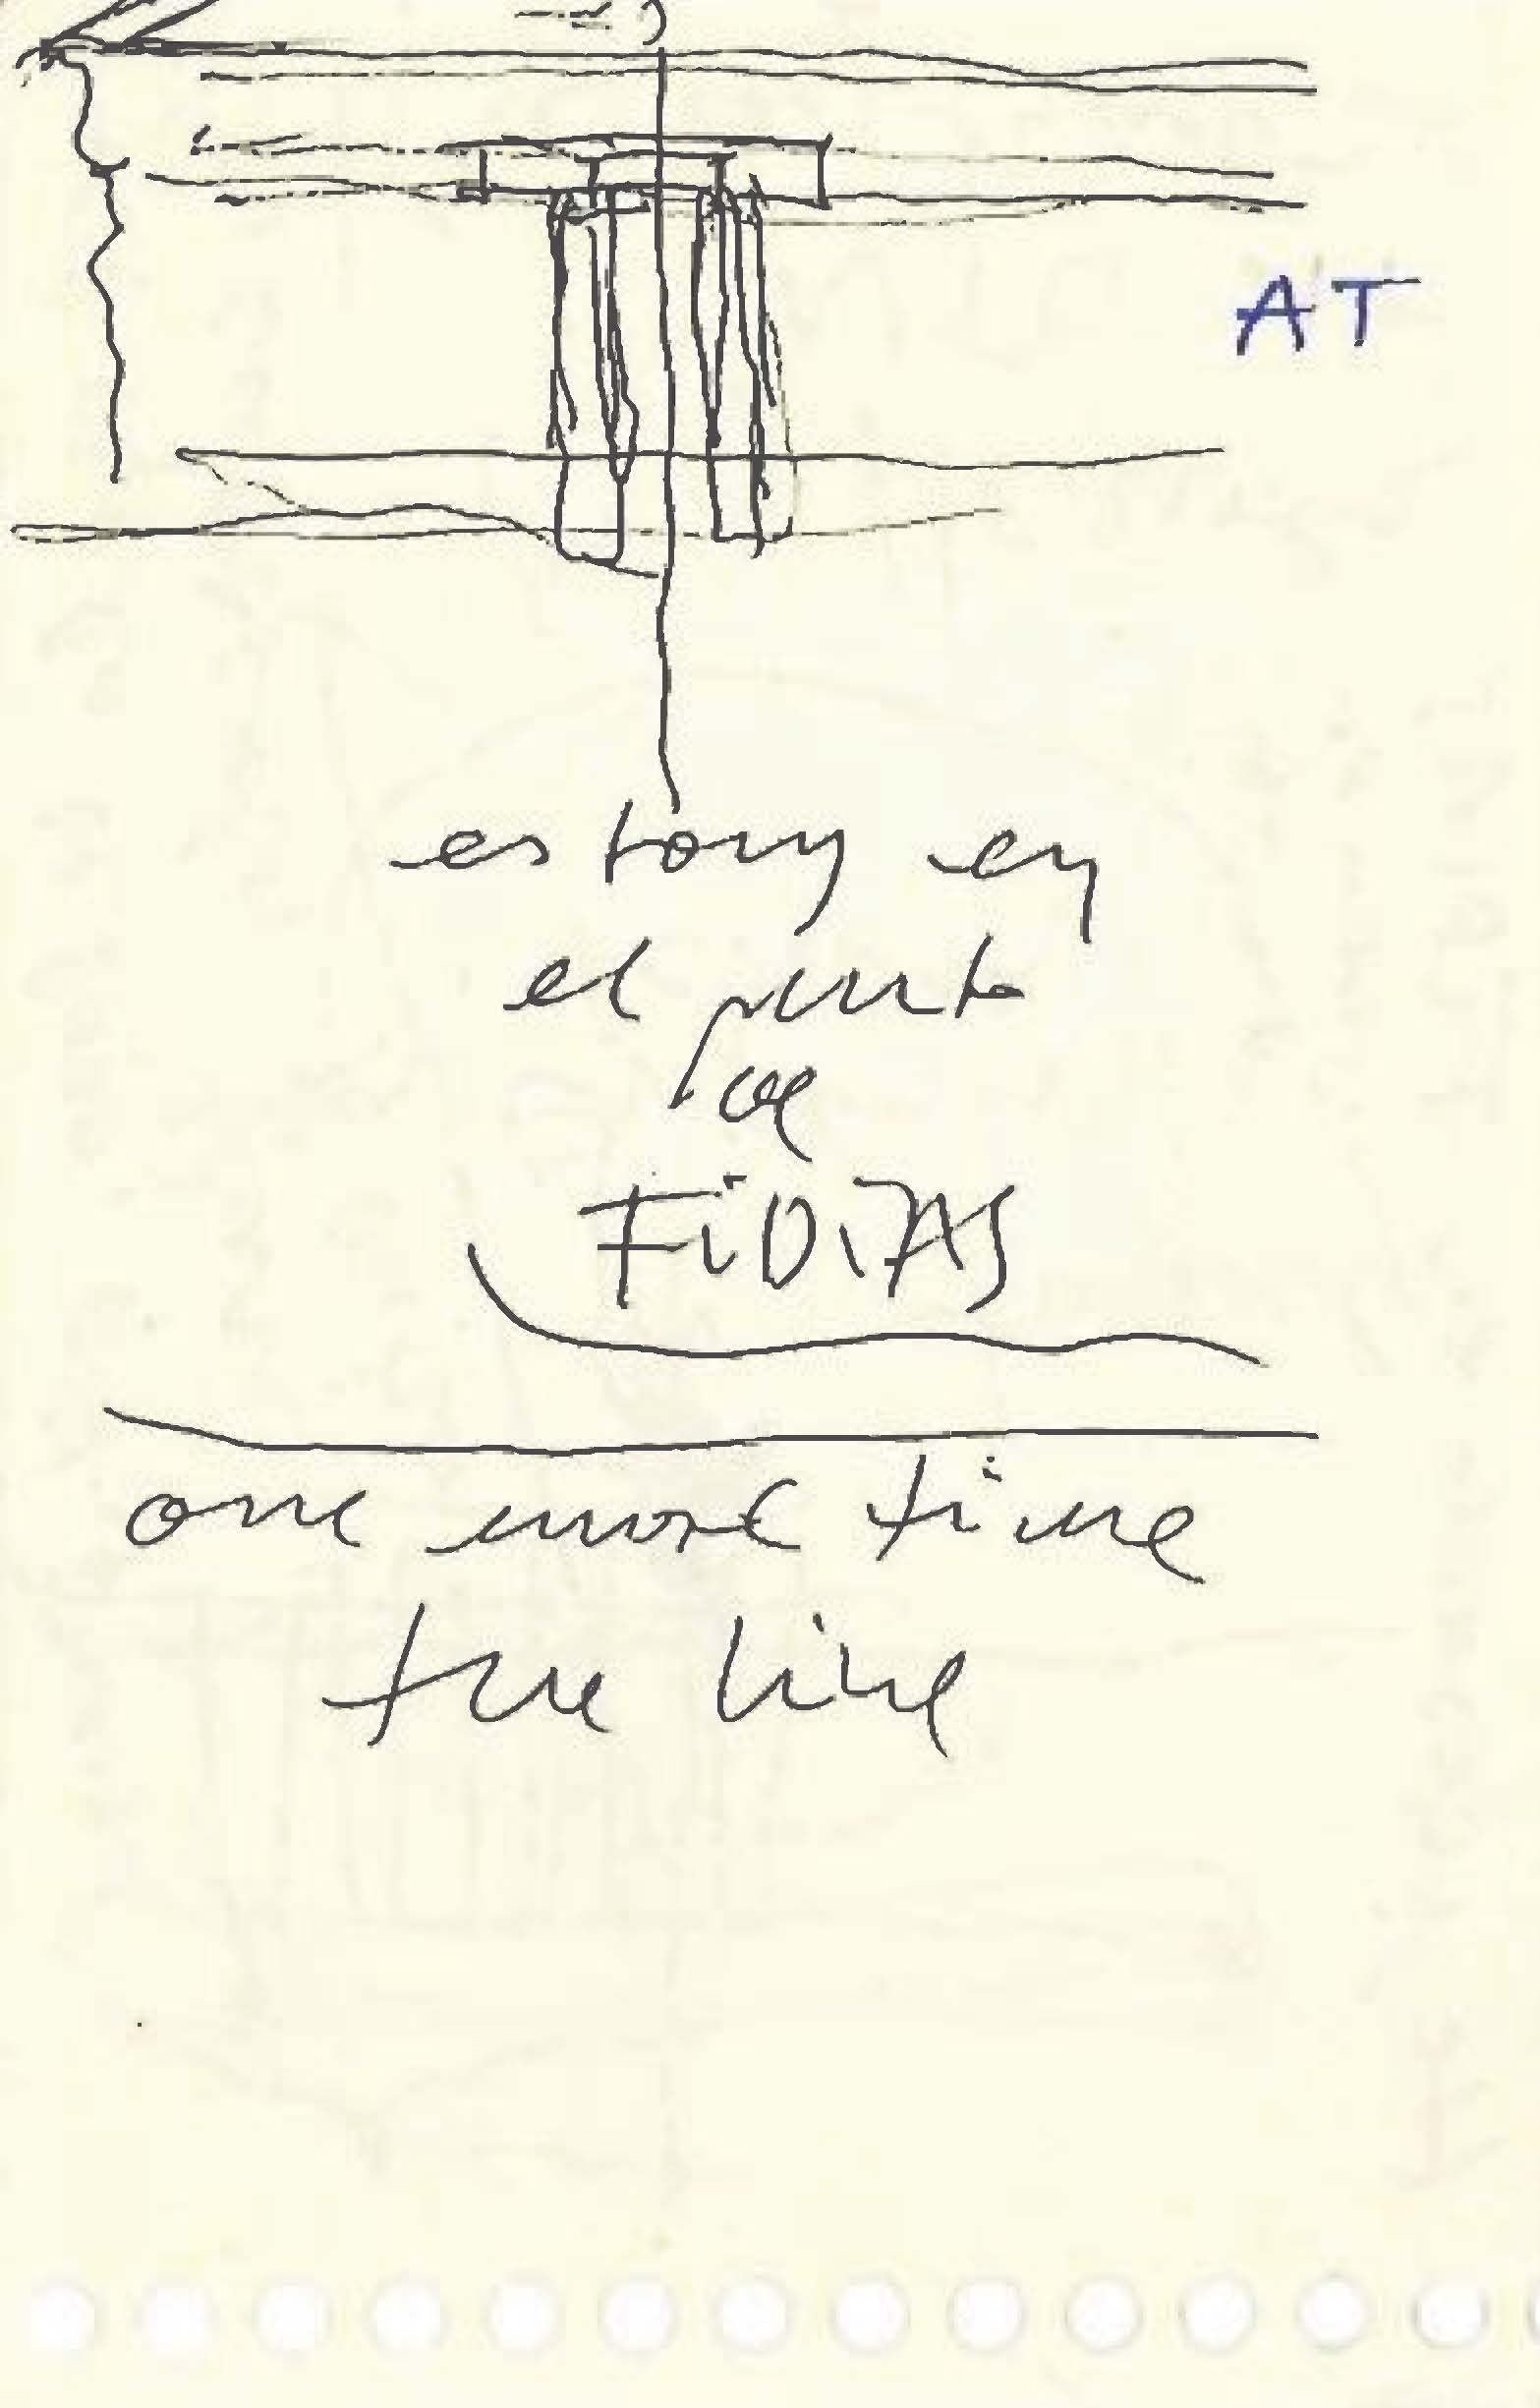 AT
estoy en
el punto
de
FiDiAS
one more time
the line